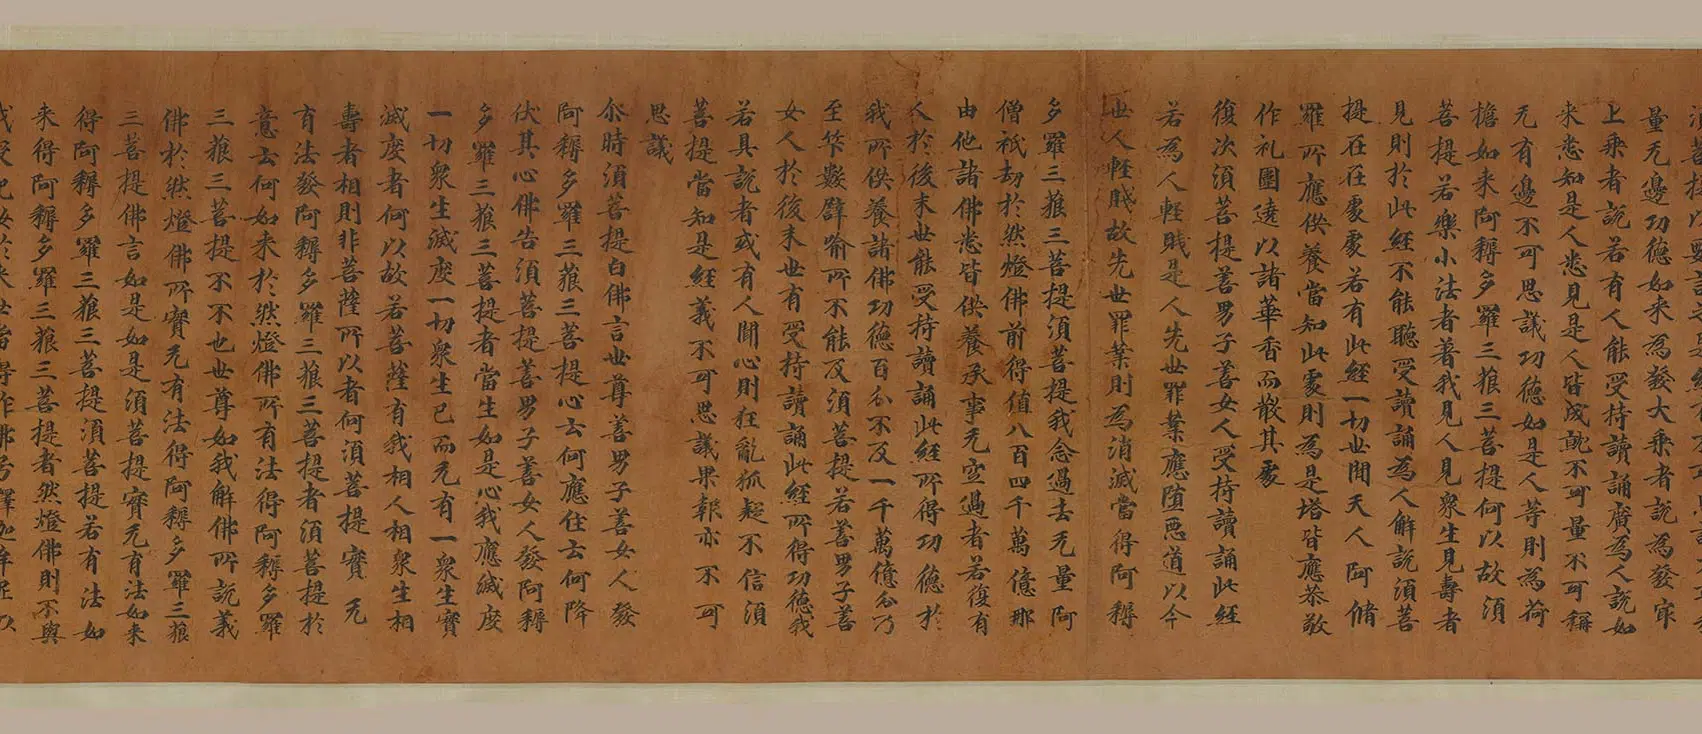 量无邊功德如来為發大乘者說為發㝡
上乘者說若有人能受持讀誦廣為人說如
来悉知是人悉見是人皆成就不可量不可稱
无有邊不可思議功德如是人等則為荷
擔如来阿耨多羅三藐三菩提何以故須
菩提若樂小法者著我見人見衆生見壽者
見則於此經不能聽受讀誦為人解說須菩
提在在處處若有此經一切世間天人阿脩
羅所應供養當知此處則為是塔皆應恭敬
作礼圍遶以諸華香而散其處
復次須菩提善男子善女人受持讀誦此經
若為人輕賤是人先世罪業應墮惡道以今
世人輕賤故先世罪業則為消滅當得阿耨
多羅三藐三菩提須菩提我念過去无量阿
僧祇劫於然燈佛前得值八百四千萬億那
由他諸佛悉皆供養承事无空過者若復有
人於後末世能受持讀誦此經所得功德於
我所供養諸佛功德百分不及一千萬億分乃
至筭數譬喻所不能及須菩提若善男子善
女人於後末世有受持讀誦此經所得功德我
若具說者或有人聞心則狂亂狐疑不信須
菩提當知是經義不可思議果報亦不可
思議
尒時須菩提白佛言世尊善男子善女人發
阿耨多羅三藐三菩提心云何應住云何降
伏其心佛告須菩提善男子善女人發阿耨
多羅三藐三菩提者當生如是心我應滅度
一切衆生滅度一切衆生已而无有一衆生實
滅度者何以故若菩薩有我相人相衆生相
壽者相則非菩薩所以者何須菩提實无
有法發阿耨多羅三藐三菩提者須菩提於
意云何如来於然燈佛所有法得阿耨多羅
三藐三菩提不不也世尊如我解佛所說義
佛於然燈佛所實无有法得阿耨多羅三藐
三菩提佛言如是如是須菩提實无有法如来
得阿耨多羅三藐三菩提須菩提若有法如
来得阿耨多羅三藐三菩提者然燈佛則不與